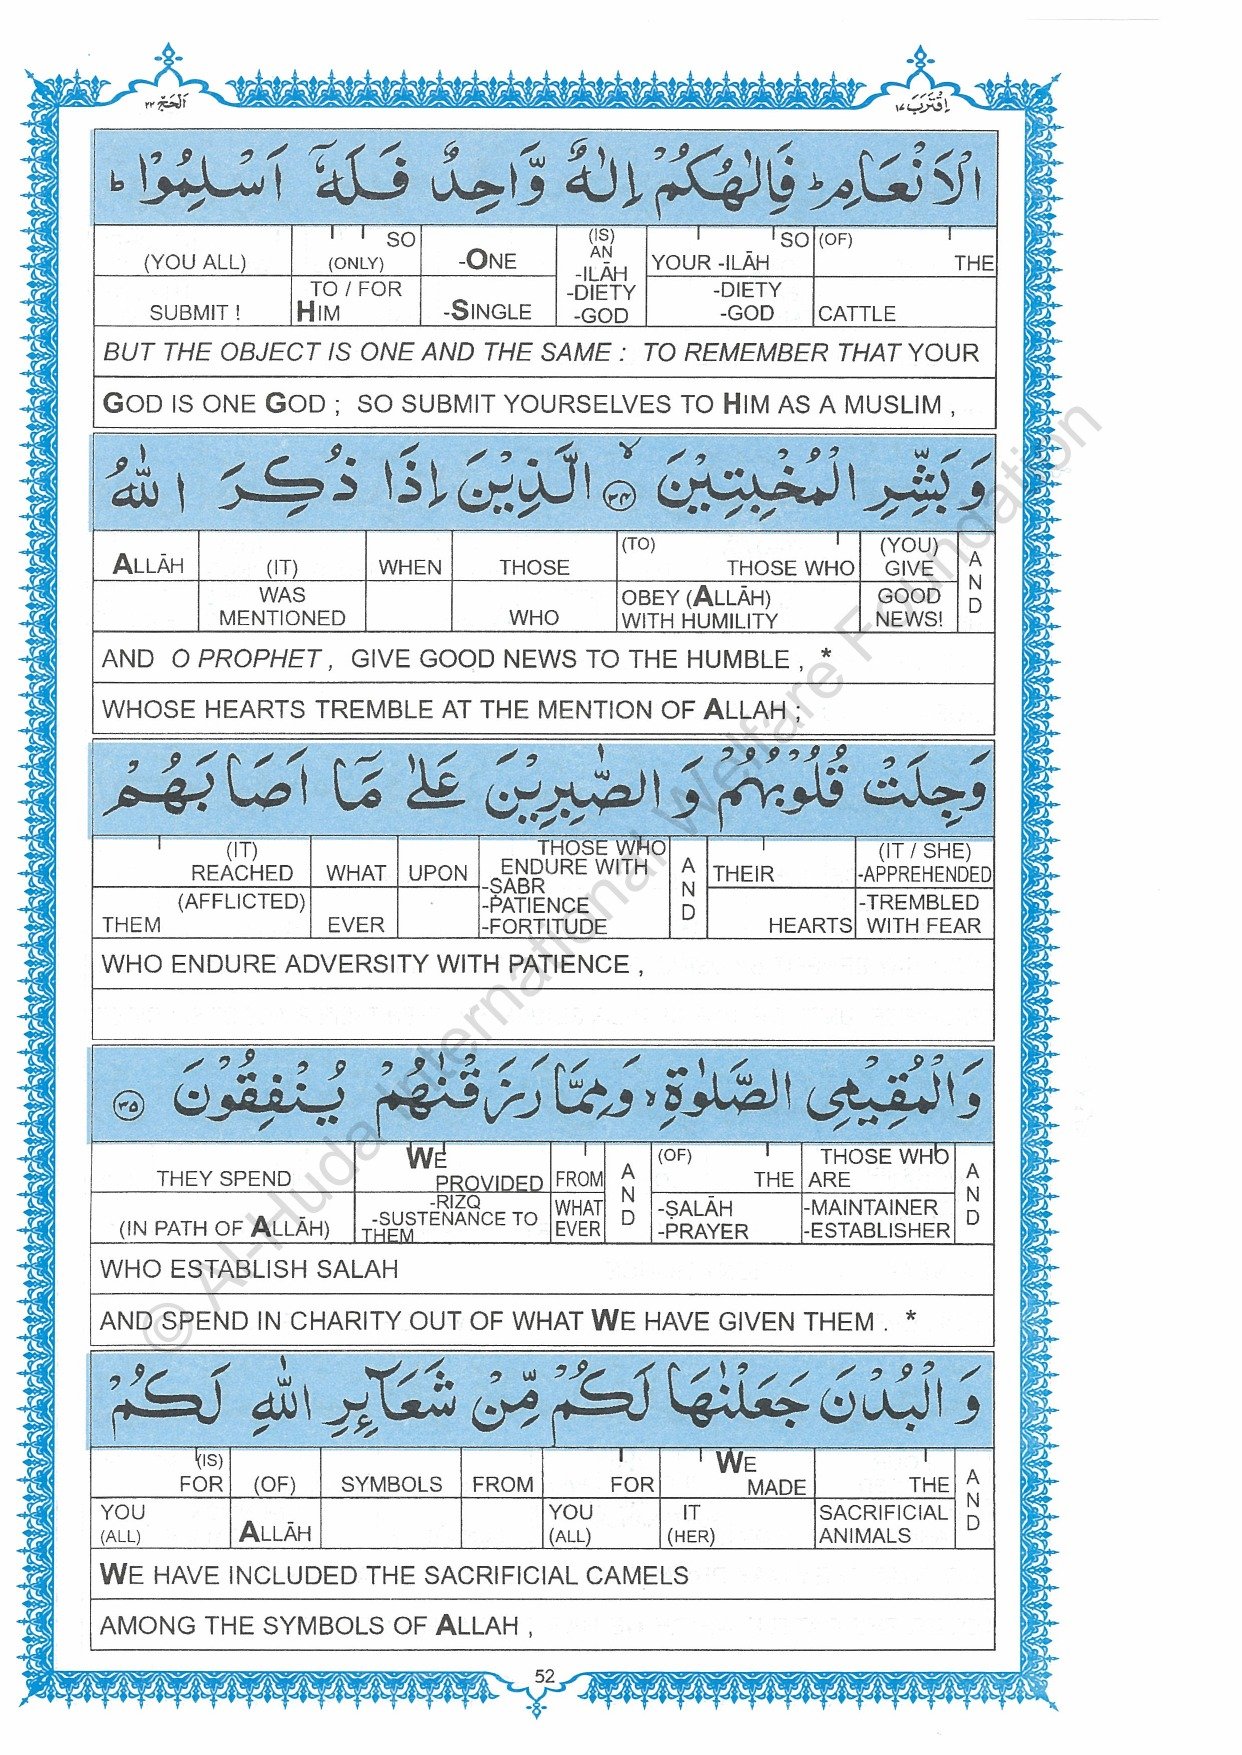 اَلْحَجّ ٢٢
اِقْتَرَبَ ١٧
الْاَنْعَامِ ؕ فَاِلٰهُكُمْ اِلٰهٌ وَّاحِدٌ فَلَهٗۤ اَسْلِمُوْا ؕ
(YOU ALL) SO (ONLY) -ONE (IS) AN -ILĀH -DIETY -GOD YOUR -ILĀH SO (OF) THE
SUBMIT ! TO / FOR HIM -SINGLE -DIETY -GOD CATTLE
BUT THE OBJECT IS ONE AND THE SAME : TO REMEMBER THAT YOUR
GOD IS ONE GOD ; SO SUBMIT YOURSELVES TO HIM AS A MUSLIM ,
وَ بَشِّرِ الْمُخْبِتِيْنَ ۙ﴿٣٤﴾ الَّذِيْنَ اِذَا ذُكِرَ اللّٰهُ
ALLĀH (IT) WHEN THOSE (TO) THOSE WHO (YOU) GIVE AND
WAS MENTIONED WHO OBEY (ALLĀH) WITH HUMILITY GOOD NEWS!
AND O PROPHET , GIVE GOOD NEWS TO THE HUMBLE , *
WHOSE HEARTS TREMBLE AT THE MENTION OF ALLAH ;
وَجِلَتْ قُلُوْبُهُمْ وَ الصّٰبِرِيْنَ عَلٰى مَاۤ اَصَابَهُمْ
(IT) REACHED WHAT UPON THOSE WHO ENDURE WITH -SABR -PATIENCE -FORTITUDE AND THEIR (IT / SHE) -APPREHENDED
(AFFLICTED) THEM EVER HEARTS -TREMBLED WITH FEAR
WHO ENDURE ADVERSITY WITH PATIENCE ,
وَ الْمُقِيْمِى الصَّلٰوةِ ۙ وَ مِمَّا رَزَقْنٰهُمْ يُنْفِقُوْنَ ﴿٣٥﴾
THEY SPEND WE PROVIDED FROM AND (OF) THE THOSE WHO ARE AND
(IN PATH OF ALLĀH) -RIZQ -SUSTENANCE TO THEM WHAT EVER -ṢALĀH -PRAYER -MAINTAINER -ESTABLISHER
WHO ESTABLISH SALAH
AND SPEND IN CHARITY OUT OF WHAT WE HAVE GIVEN THEM . *
وَ الْبُدْنَ جَعَلْنٰهَا لَكُمْ مِّنْ شَعَآئِرِ اللّٰهِ لَكُمْ
(IS) FOR (OF) SYMBOLS FROM FOR WE MADE THE AND
YOU (ALL) ALLĀH YOU (ALL) IT (HER) SACRIFICIAL ANIMALS
WE HAVE INCLUDED THE SACRIFICIAL CAMELS
AMONG THE SYMBOLS OF ALLAH ,
52
© Al-Huda International Welfare Foundation